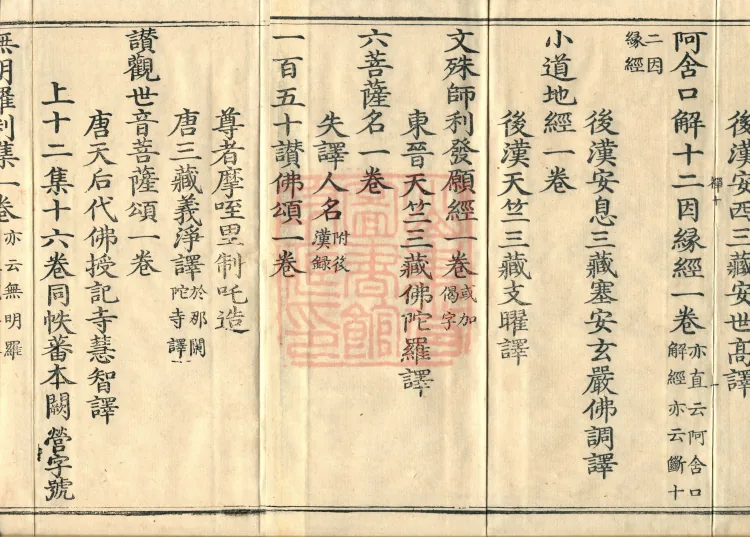 後漢安西三藏安世高譯
阿含口解十二因縁經一卷 亦直云阿含口解經亦云斷十二因縁經
後漢安息三藏塞安玄嚴佛調譯
小道地經一卷
後漢天竺三藏支曜譯
文殊師利發願經一卷 或加偈字
東晉天竺三藏佛陀羅譯
六菩薩名一卷
失譯人名 附後漢録
一百五十讃佛頌一卷
尊者摩咥里制吒造
唐三藏義淨譯 於那闌陀寺譯
讃觀世音菩薩頌一卷
唐天后代佛授記寺慧智譯
上十二集十六卷同帙蕃本闕 營字號
無明羅刹集一卷 亦云無明羅